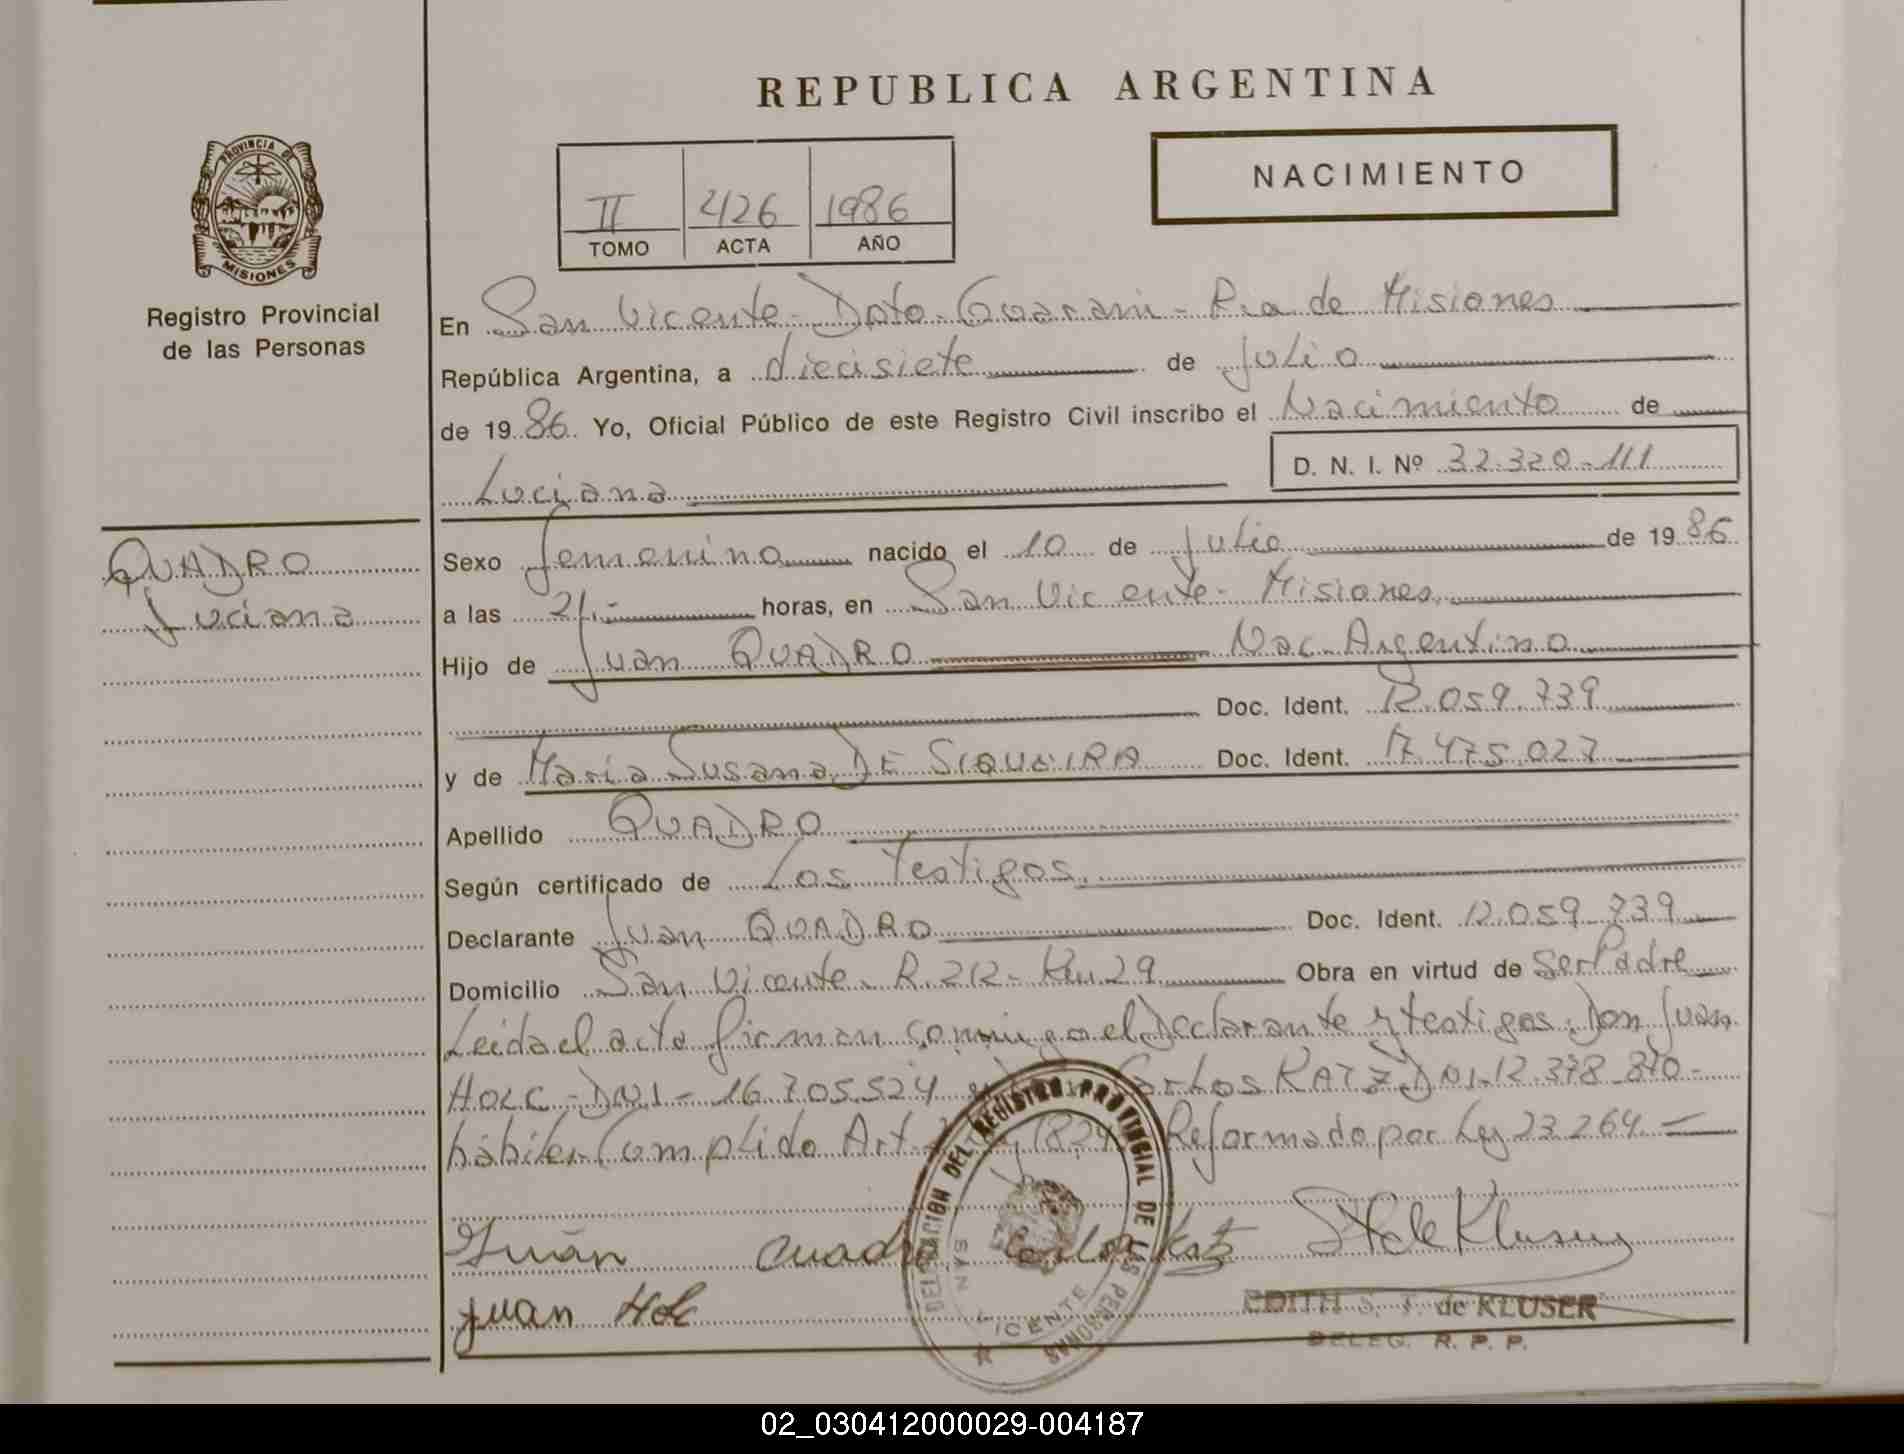 REPUBLICA ARGENTINA
PROVINCIA DE
MISIONES
Registro Provincial
de las Personas
NACIMIENTO
II 426 1986
TOMO ACTA AÑO
En San Vicente - Dpto. Guaraní - Pcia de Misiones
República Argentina, a diecisiete de Julio
de 1986 Yo, Oficial Público de este Registro Civil inscribo el Nacimiento de
Luciana
D. N. I. Nº 32.320.111
QUADRO
Luciana
Sexo femenino nacido el 10 de Julio de 1986
a las 21 horas, en San Vicente - Misiones
Hijo de Juan QUADRO Nac. Argentino
Doc. Ident. 12.059.739
y de María Susana DE SIQUEIRA Doc. Ident. 17.475.027
Apellido QUADRO
Según certificado de Los Testigos.
Declarante Juan QUADRO Doc. Ident. 12.059.739
Domicilio San Vicente R. 212 - Km 29 Obra en virtud de Ser Padre
Leida el acta firman conmigo el Declarante y testigos. Don Juan
HOLC - DNI - 16.705.524 Carlos KATZ DNI - 12.378.870 -
hábiles Cumplido Art. Reformado por Ley 23.264 -
Juan Cuadro Carlos Katz
Juan Holc
EDITH S. F. de KLUSER
DELEG. R. P. P.
DELEGACION DEL REGISTRO PROVINCIAL DE LAS PERSONAS
SAN VICENTE
02_030412000029-004187